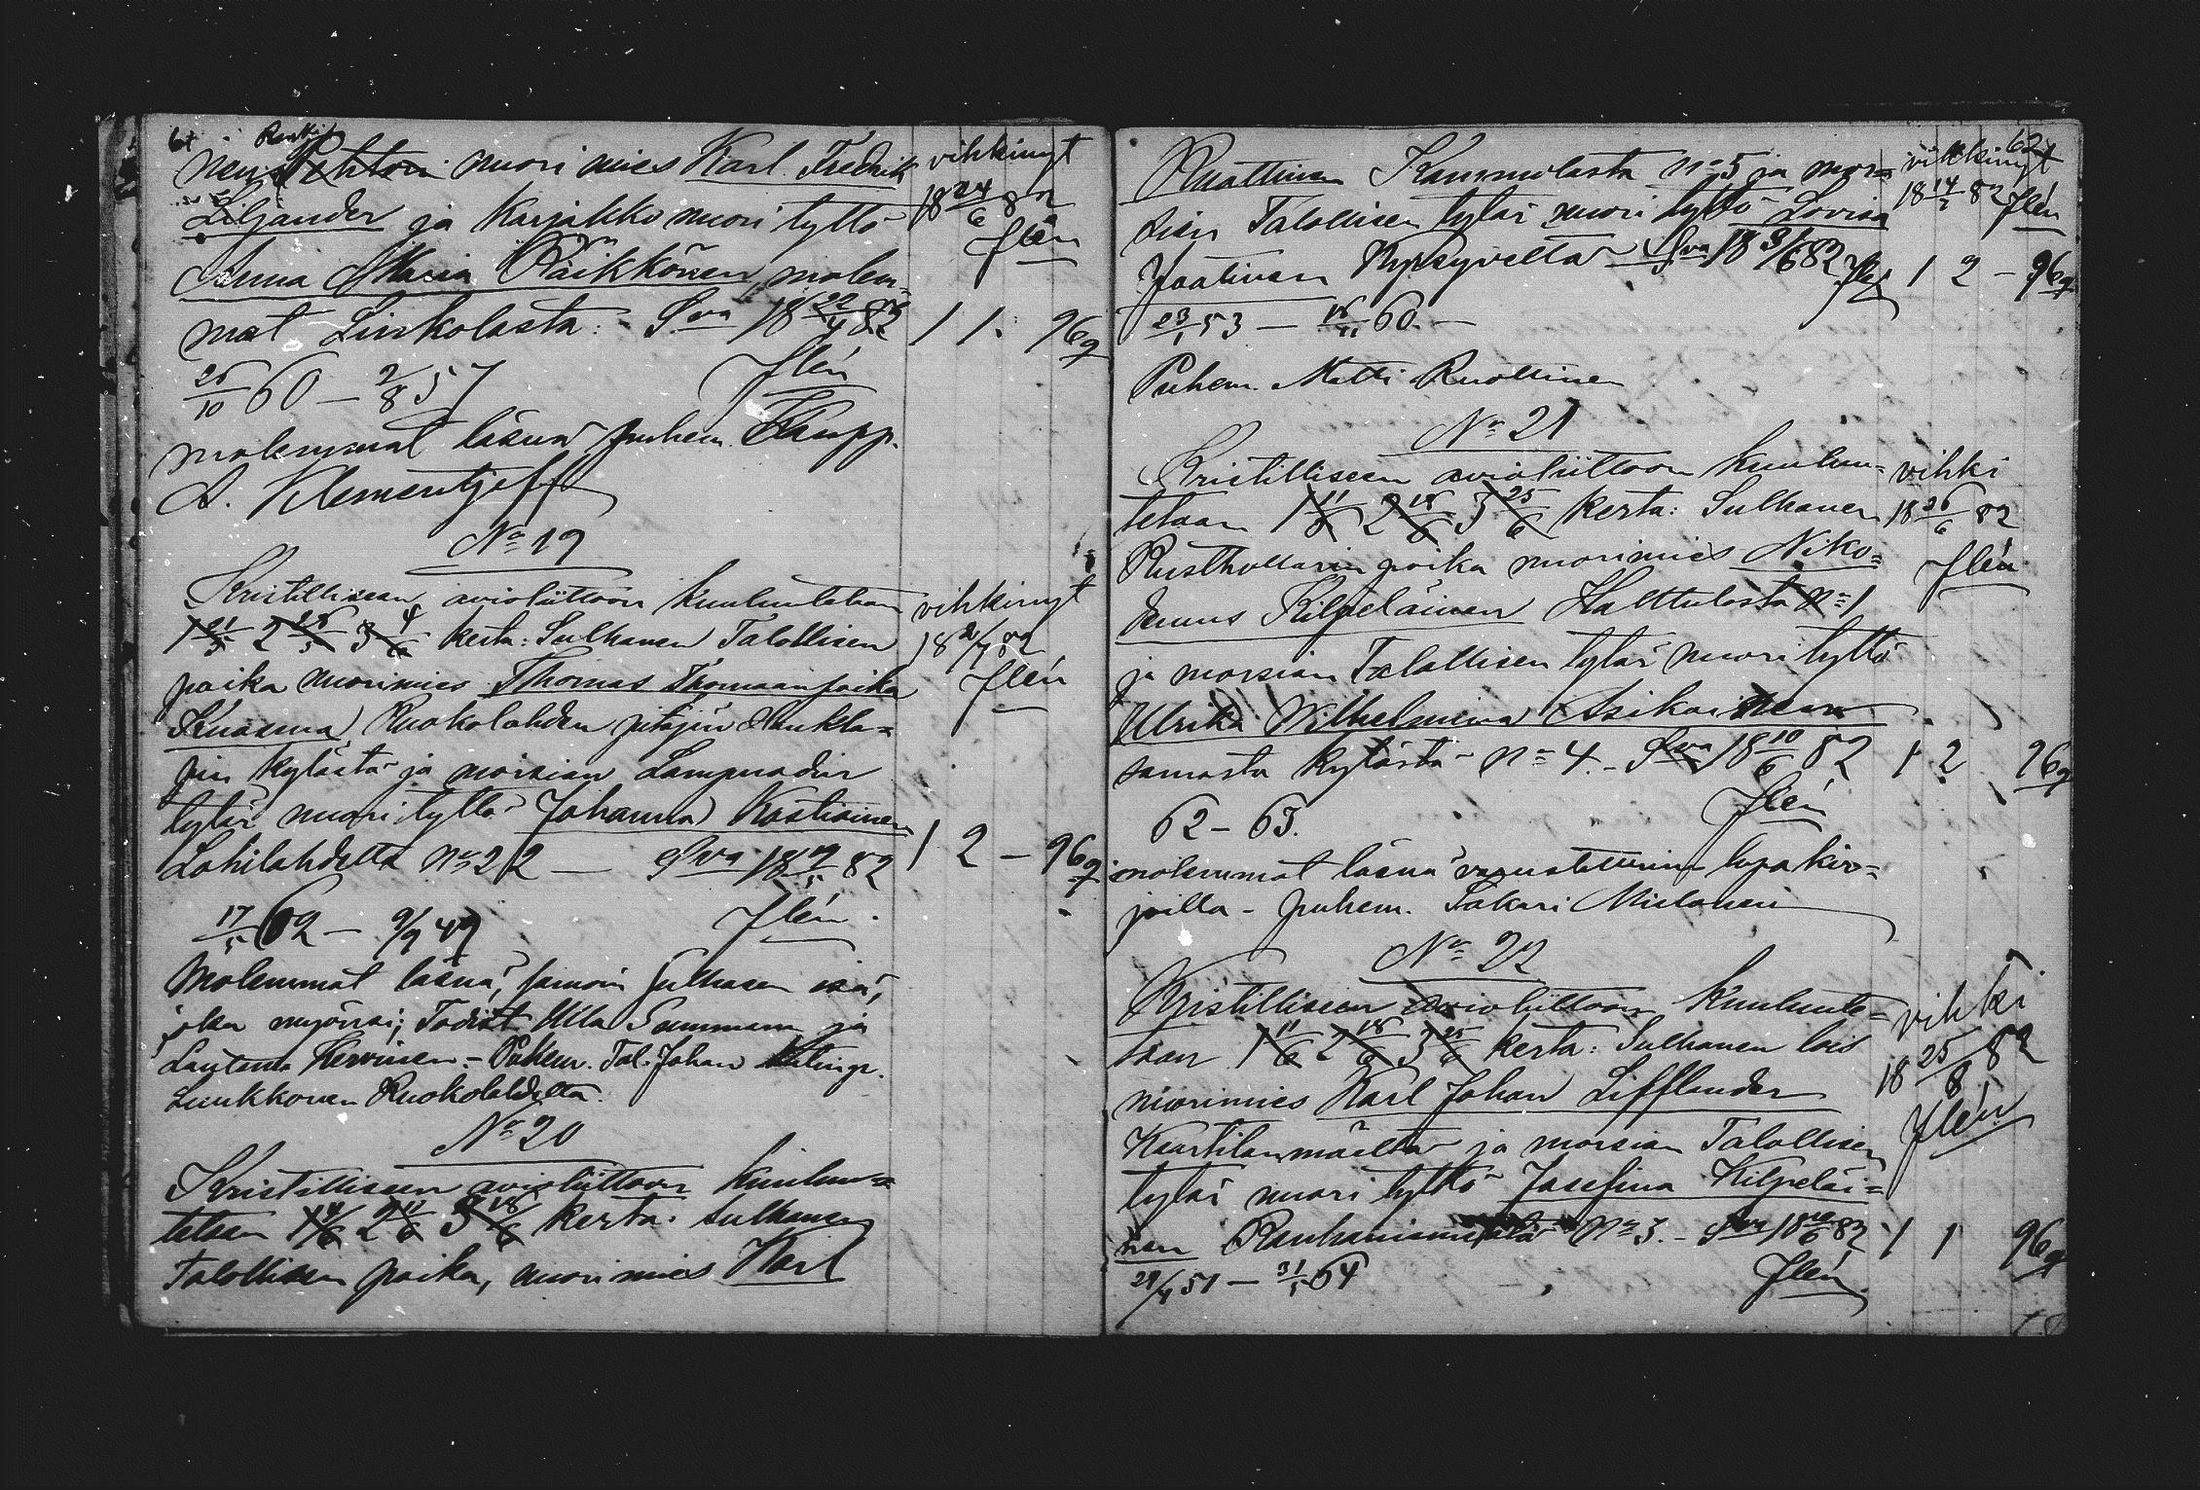 61
nen nuori mies Karl Fredrik
Liljander ja Karjakko nuori tyttö
Anna Maria Räikkönen, molem-
mat Linkolasta. Sva 18 22/4 82
26/10 60 — 2/8 57 Flén
molemmat läsnä puhem. Kaupp.
A. Klementjeff
vihkinyt
18 24/6 82
Flén
1 1. 96
No 19
Kristilliseen avioliittoon kuulutetaan
1 21/5 2 28/5 3 4/6 kerta: Sulhanen Talollisen
poika nuorimies Thomas Thomaanpoika
Kuosma Ruokolahden pitäjän Haukla-
pin kylästä ja morsian Lampuodin
tytär nuori tyttö Johanna Kostiainen
Lohilahdelta No 22 — Sva 18 82
17/5 62 — 9/9 49 Flén.
Molemmat läsnä, samoin sulhasen isä,
joka myönsi; Todist. Ulla Summanen ja
Lautama Hervinen = Puhem. Tal. Johan
Luukkonen Ruokolahdelta.
vihkinyt
18 2/7 82
Flén
1 2 — 96
No 20
Kristilliseen avioliittoon kuulu-
tetaan 1 4/6 2 11/6 3 18/6 kerta: sulhanen
Talollisen poika, nuorimies Karl
62
Ruottinen Kammolasta no 5 ja mor-
sian Talollisen tytär nuori tyttö Lovisa
Jaatinen Sva 18 3/6 82 Fl.
23/1 53 — 60. —
Puhem. Matti Ruottinen
vihkinyt
18 14/7 82 Flén
1 2 — 96
No 21
Kristilliseen avioliittoon kuulu-
tetaan 1 11/6 2 18/6 3 25/6 kerta: Sulhanen
Rusthollarin poika nuorimies Niko-
demus Kilpeläinen Halttulasta no 1
ja morsian Talollisen tytär nuori tyttö
Ulrika Wilhelmina Asikainen
samasta kylästä no 4. - Sva 18 10/6 82
62 — 63. Flén
molemmat läsnä varustettuina lupakir-
joilla - puhem. Sakari Mielonen
vihki
18 26/6 82
Flén
1 2 96
No 22
Kristilliseen avioliittoon kuulute-
taan 1 11/6 2 18/6 3 25/6 kerta: Sulhanen lois
nuorimies Karl Johan Lifflander
Kaartilanmäeltä ja morsian Talollisen
tytär nuori tyttö Josefina Kilpeläi-
nen no 3. - Sva 18 10/6 82
51 — 31/5 64 Flén
vihki
18 25/8 82
Flén
1 1 96